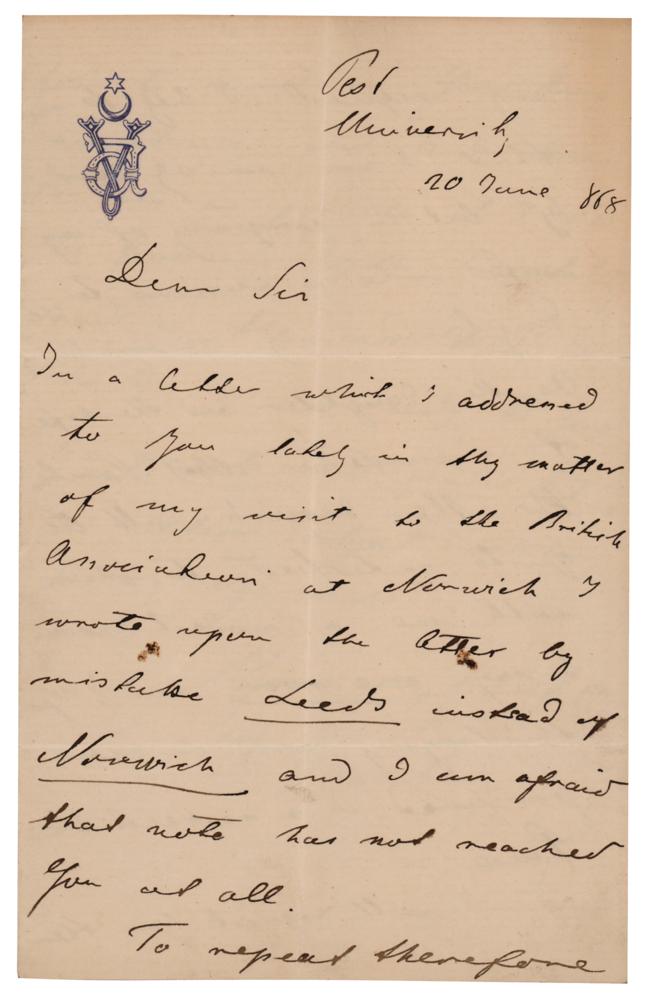 Pest
University
20 June 868
Dear Sir
In a letter which I addressed
to you lately in the matter
of my visit to the British
Association at Norwich I
wrote upon the letter by
mistake Leeds instead of
Norwich and I am afraid
that note has not reached
you at all.
To repeat therefore